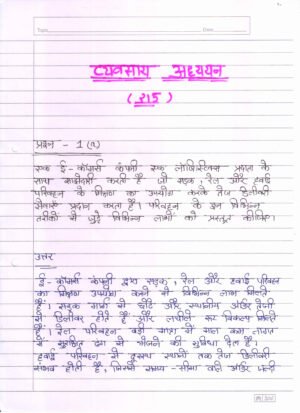 व्यवसाय अध्ययन
(215)
प्रश्न - 1 (a)
एक ई-कॉमर्स कंपनी एक लॉजिस्टिक्स प्रदाता के
साथ साझेदारी करता है जो सड़क, रेल और हवाई
परिवहन के मिश्रण का उपयोग करके तेज डिलीवरी
सेवाएं प्रदान करता है। परिवहन के इन विभिन्न
तरीकों से जुड़े विभिन्न लाभों को प्रस्तुत कीजिए।
उत्तर
ई-कॉमर्स कंपनी द्वारा सड़क, रेल और हवाई परिवहन
का मिश्रण उपयोग करने से विभिन्न लाभ मिलते
हैं। सड़क मार्ग से छोटे और स्थानीय ऑर्डर तेजी
से डिलीवर होते हैं और लचीले रूट विकल्प मिलते
हैं। रेल परिवहन बड़ी मात्रा में माल कम लागत
में सुरक्षित ढंग से भेजने की सुविधा देता है।
हवाई परिवहन से दूरस्थ स्थानों तक तेज डिलीवरी
संभव होती है, जिससे समय-सीमा वाले ऑर्डर जल्दी